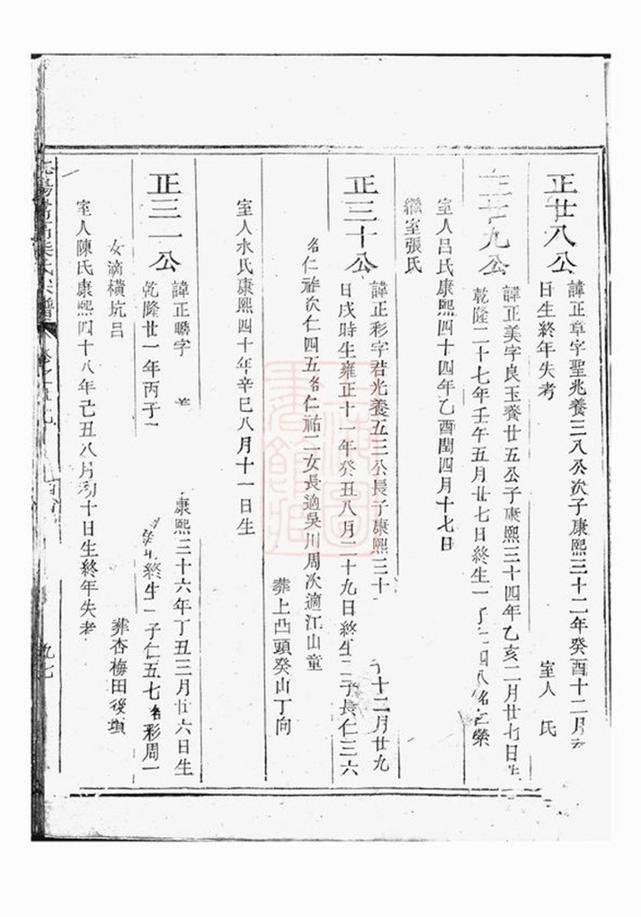 正廿八公
諱正章字聖兆養三八公次子康熙三十二年癸酉十二月
日生終年失考
室人 氏
廿九公
諱正美字良玉養廿五公子康熙三十四年乙亥二月廿七日生
乾隆二十七年壬午五月廿七日終生一
室人呂氏康熙四十四年乙酉閏四月十七日
繼室張氏
正三十公
諱正彩字君光養五三公長子康熙三十 十二月廿九
日戌時生雍正十一年癸丑八月二十九日終生二子長仁三六
名仁 次仁四五名仁祐二女長適吳川周次適江山童
葬上凸頭癸山丁向
室人水氏康熙四十年辛巳八月十一日生
正三一公
諱正聯字 康熙三十六年丁丑三月廿六日生
乾隆廿一年丙子 終生一子仁五七名彩周一
女適橫坑呂
葬杏梅田後塢
室人陳氏康熙四十八年己丑八月初十日生終年失考
氏宗譜
九七